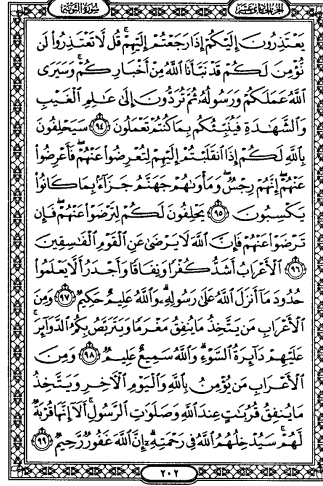 الجزء الحادي عشر
سورة التوبة
يَعْتَذِرُونَ إِلَيْكُمْ إِذَا رَجَعْتُمْ إِلَيْهِمْ قُل لَّا تَعْتَذِرُوا لَن
نُّؤْمِنَ لَكُمْ قَدْ نَبَّأَنَا اللَّهُ مِنْ أَخْبَارِكُمْ وَسَيَرَى
اللَّهُ عَمَلَكُمْ وَرَسُولُهُ ثُمَّ تُرَدُّونَ إِلَى عَالِمِ الْغَيْبِ
وَالشَّهَادَةِ فَيُنَبِّئُكُم بِمَا كُنتُمْ تَعْمَلُونَ ﴿٩٤﴾ سَيَحْلِفُونَ
بِاللَّهِ لَكُمْ إِذَا انقَلَبْتُمْ إِلَيْهِمْ لِتُعْرِضُوا عَنْهُمْ فَأَعْرِضُوا
عَنْهُمْ إِنَّهُمْ رِجْسٌ وَمَأْوَاهُمْ جَهَنَّمُ جَزَاءً بِمَا كَانُوا
يَكْسِبُونَ ﴿٩٥﴾ يَحْلِفُونَ لَكُمْ لِتَرْضَوْا عَنْهُمْ فَإِن
تَرْضَوْا عَنْهُمْ فَإِنَّ اللَّهَ لَا يَرْضَى عَنِ الْقَوْمِ الْفَاسِقِينَ
﴿٩٦﴾ الْأَعْرَابُ أَشَدُّ كُفْرًا وَنِفَاقًا وَأَجْدَرُ أَلَّا يَعْلَمُوا
حُدُودَ مَا أَنزَلَ اللَّهُ عَلَى رَسُولِهِ وَاللَّهُ عَلِيمٌ حَكِيمٌ ﴿٩٧﴾ وَمِنَ
الْأَعْرَابِ مَن يَتَّخِذُ مَا يُنفِقُ مَغْرَمًا وَيَتَرَبَّصُ بِكُمُ الدَّوَائِرَ
عَلَيْهِمْ دَائِرَةُ السَّوْءِ وَاللَّهُ سَمِيعٌ عَلِيمٌ ﴿٩٨﴾ وَمِنَ
الْأَعْرَابِ مَن يُؤْمِنُ بِاللَّهِ وَالْيَوْمِ الْآخِرِ وَيَتَّخِذُ
مَا يُنفِقُ قُرُبَاتٍ عِندَ اللَّهِ وَصَلَوَاتِ الرَّسُولِ أَلَا إِنَّهَا قُرْبَةٌ
لَّهُمْ سَيُدْخِلُهُمُ اللَّهُ فِي رَحْمَتِهِ إِنَّ اللَّهَ غَفُورٌ رَّحِيمٌ ﴿٩٩﴾
٢٠٢